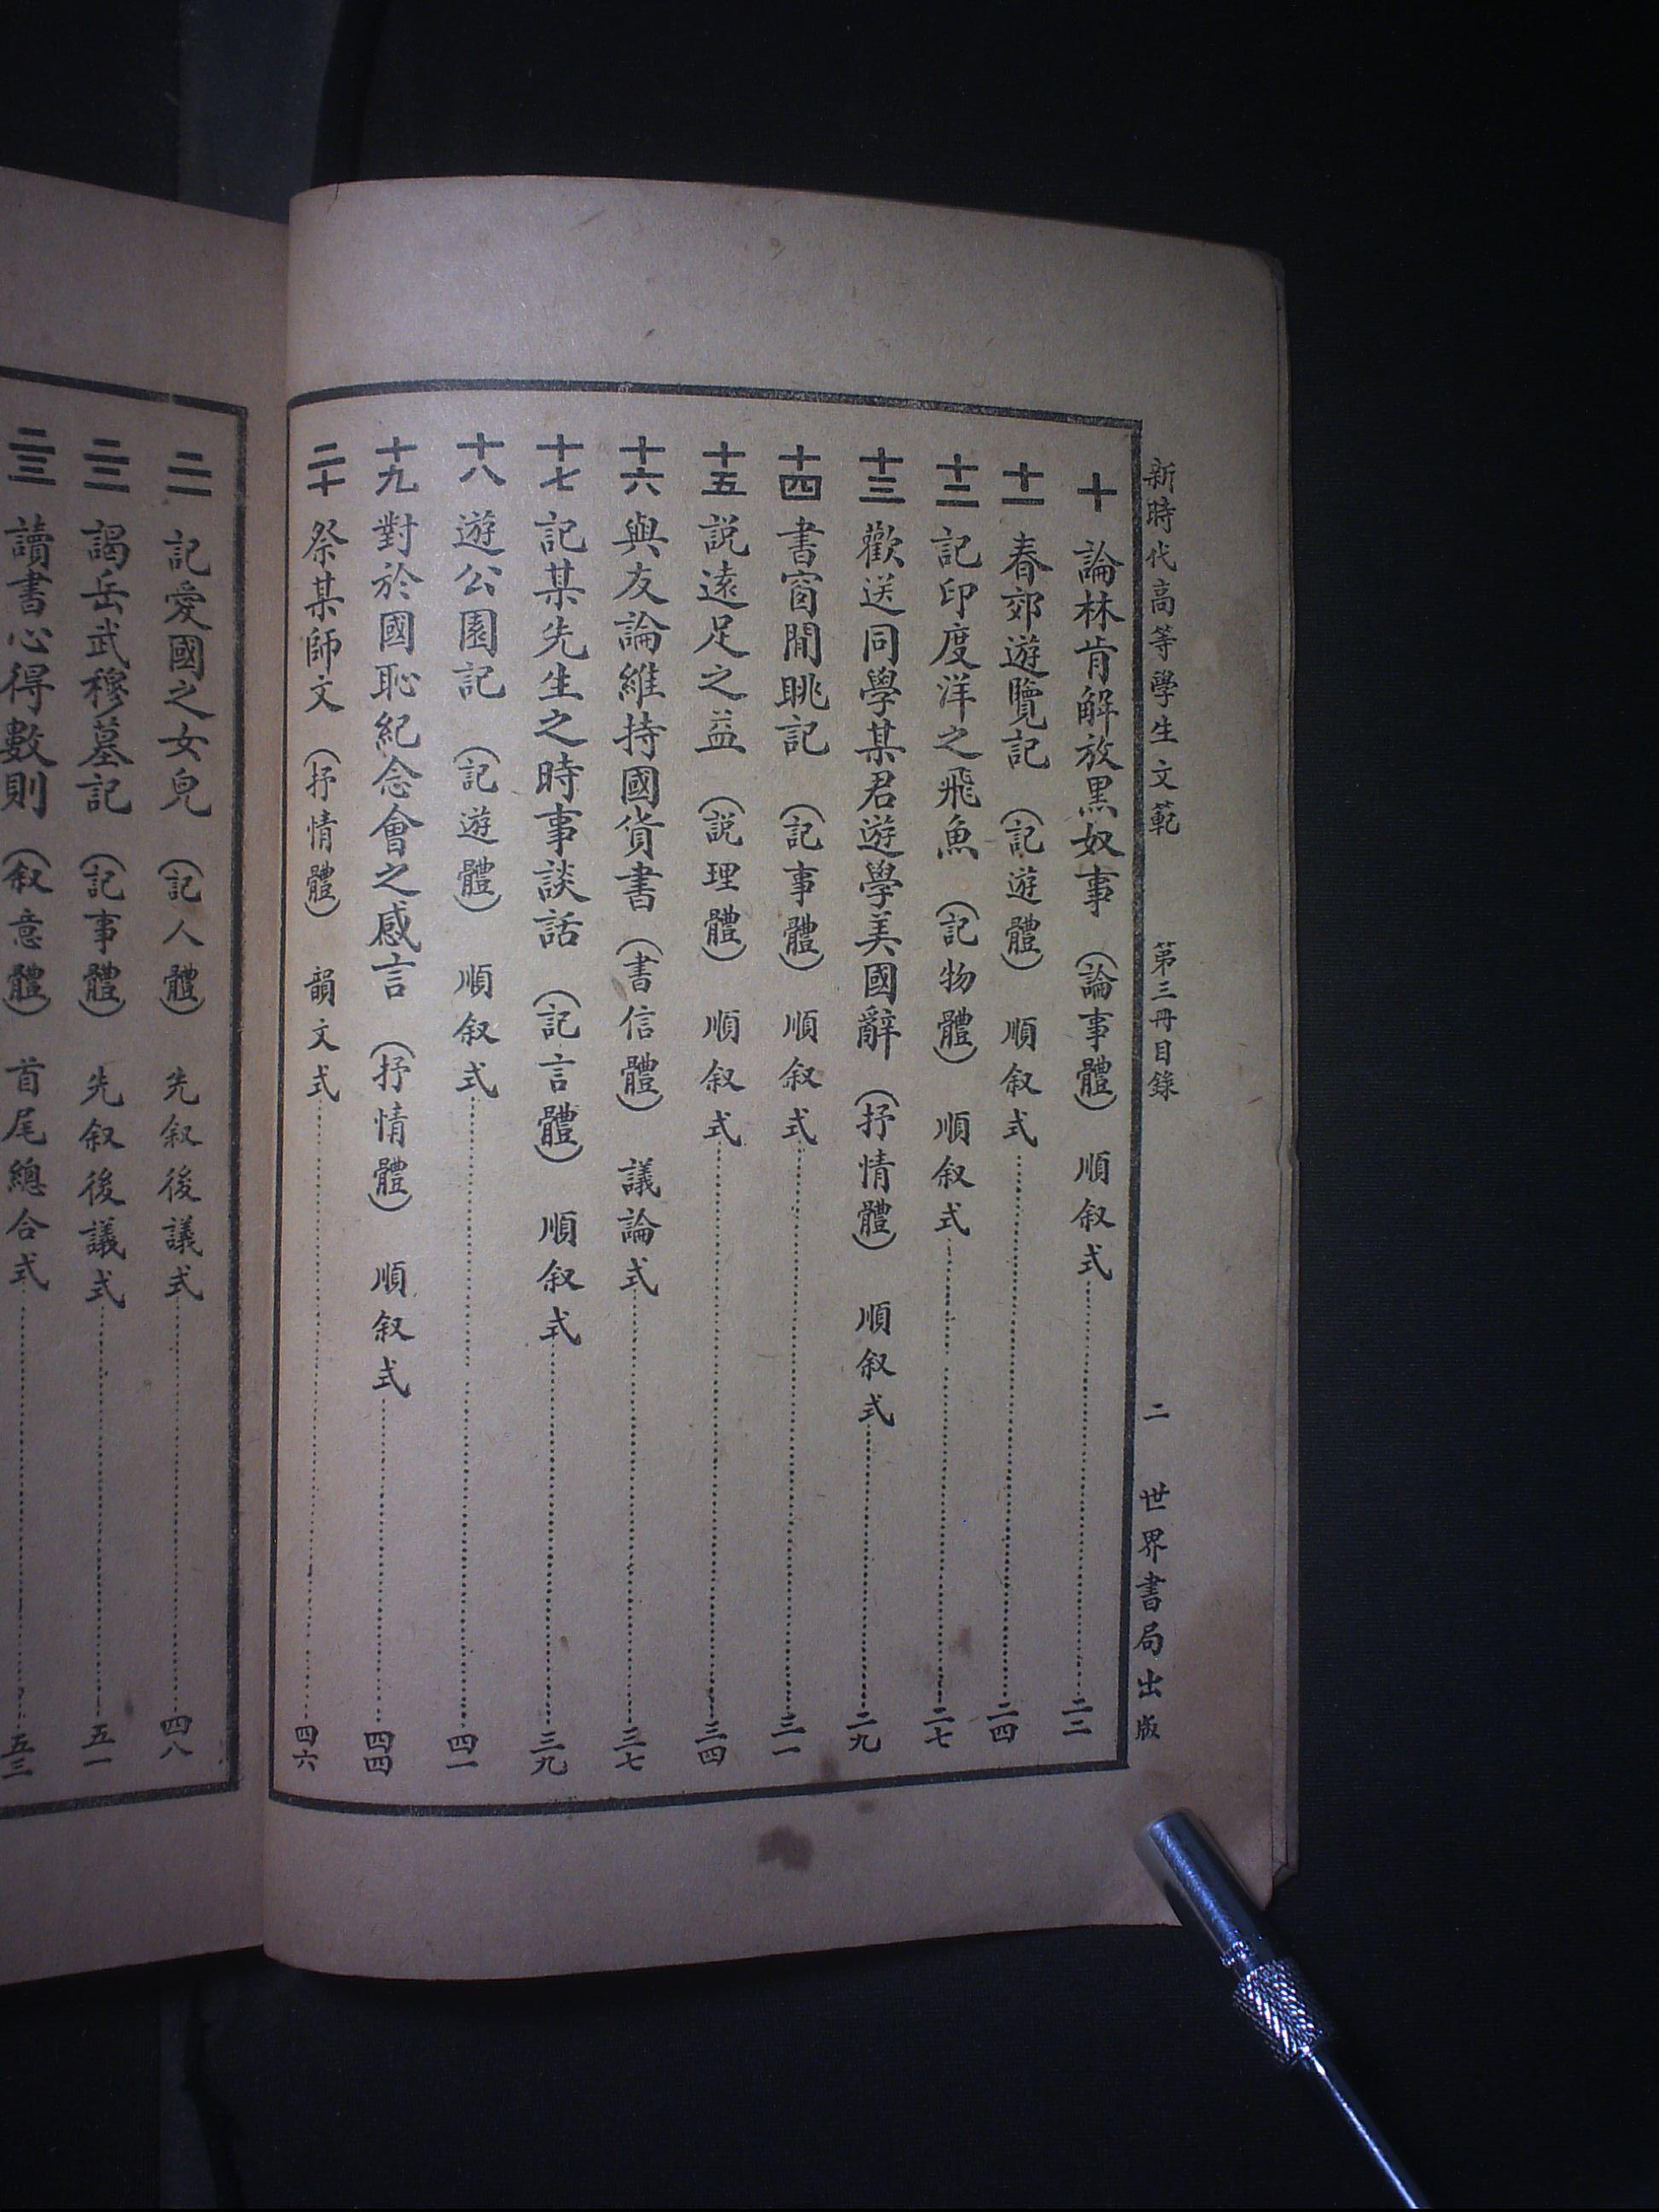 新時代高等學生文範 第三冊目錄 二 世界書局出版
十 論林肯解放黑奴事 (論事體) 順叙式 二二
十一 春郊遊覽記 (記遊體) 順叙式 二四
十二 記印度洋之飛魚 (記物體) 順叙式 二七
十三 歡送同學某君遊學美國辭 (抒情體) 順叙式 二九
十四 書窗閒眺記 (記事體) 順叙式 三一
十五 説遠足之益 (説理體) 順叙式 三四
十六 與友論維持國貨書 (書信體) 議論式 三七
十七 記某先生之時事談話 (記言體) 順叙式 三九
十八 遊公園記 (記遊體) 順叙式 四一
十九 對於國恥紀念會之感言 (抒情體) 順叙式 四四
二十 祭某師文 (抒情體) 韻文式 四六
二一 記愛國之女兒 (記人體) 先叙後議式 四八
二二 謁岳武穆墓記 (記事體) 先叙後議式 五一
二三 讀書心得數則 (叙意體) 首尾總合式 五三